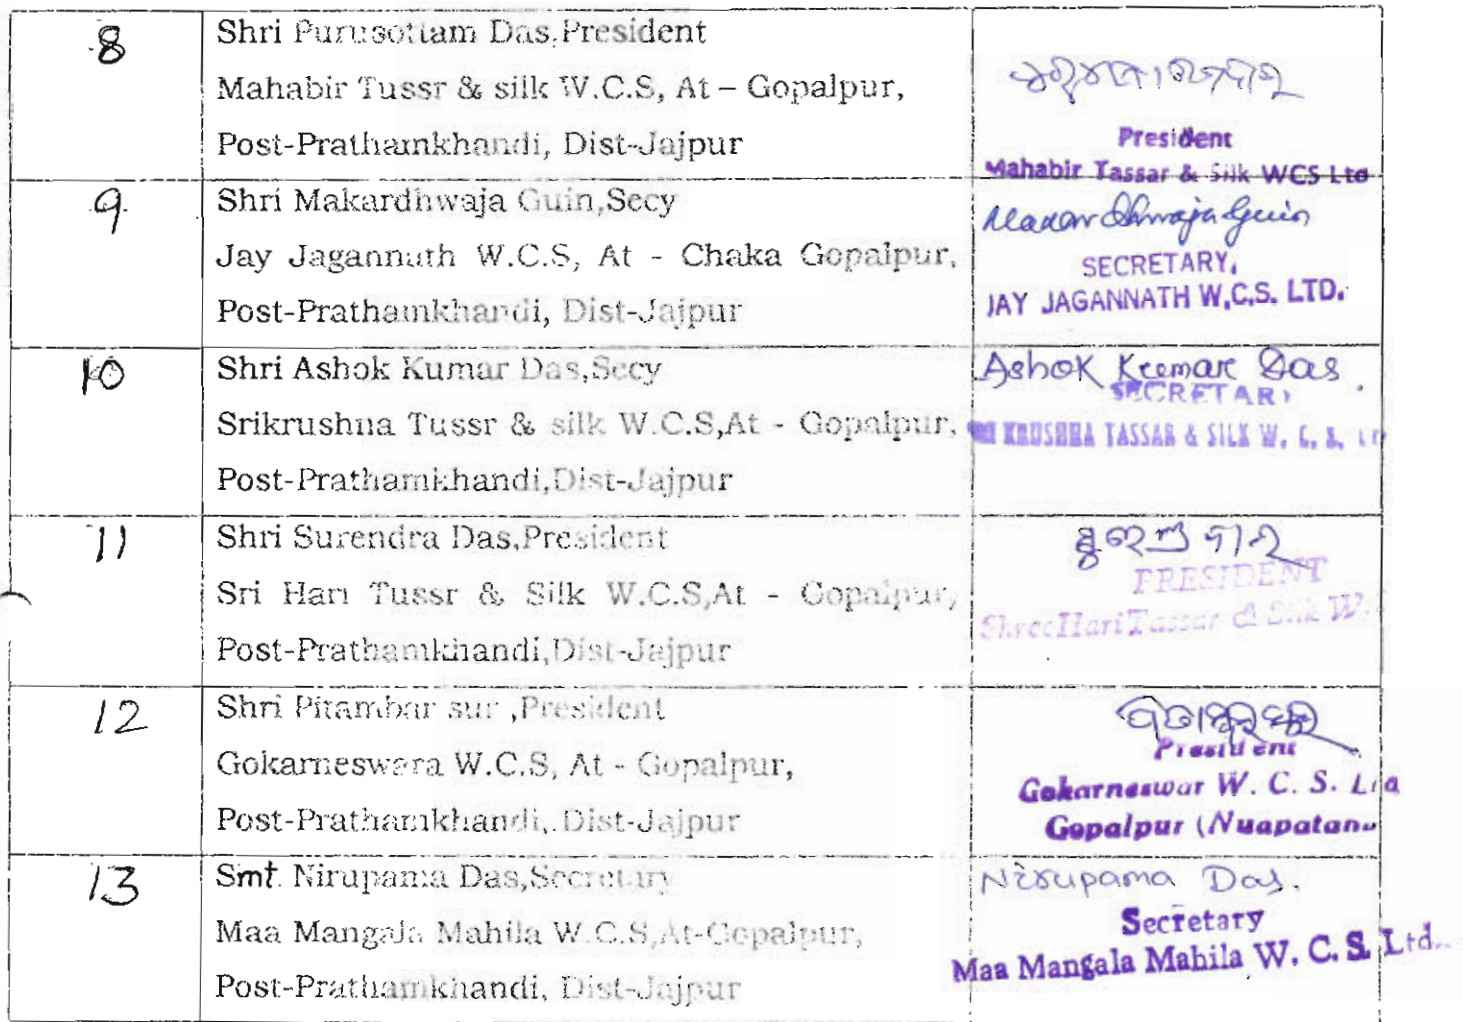 8
Shri Purusottam Das,President
Mahabir Tussr & silk W.C.S, At – Gopalpur,
Post-Prathamkhandi, Dist-Jajpur
President
Mahabir Tassar & Silk WCS Ltd
9
Shri Makardhwaja Guin,Secy
Jay Jagannath W.C.S, At - Chaka Gopalpur,
Post-Prathamkhandi, Dist-Jajpur
Makar Dhwaja Guin
SECRETARY,
JAY JAGANNATH W.C.S. LTD.
10
Shri Ashok Kumar Das,Secy
Srikrushna Tussr & silk W.C.S,At - Gopalpur,
Post-Prathamkhandi,Dist-Jajpur
Ashok Kumar Das.
SECRETARY
KRUSHNA TASSAR & SILK W. C. S.
11
Shri Surendra Das,President
Sri Hari Tussr & Silk W.C.S,At - Gopalpur,
Post-Prathamkhandi,Dist-Jajpur
ସୁରେନ୍ଦ୍ର ଦାସ
PRESIDENT
Shree Hari Tassar & Silk W.
12
Shri Pitambar sur ,President
Gokarneswara W.C.S, At - Gopalpur,
Post-Prathamkhandi, Dist-Jajpur
ପିତାମ୍ବର ସୁର
President
Gokarneswar W. C. S. Ltd
Gopalpur (Nuapatana
13
Smt. Nirupama Das,Secretary
Maa Mangala Mahila W.C.S,At-Gopalpur,
Post-Prathamkhandi, Dist-Jajpur
Nirupama Das.
Secretary
Maa Mangala Mahila W. C. S. Ltd..